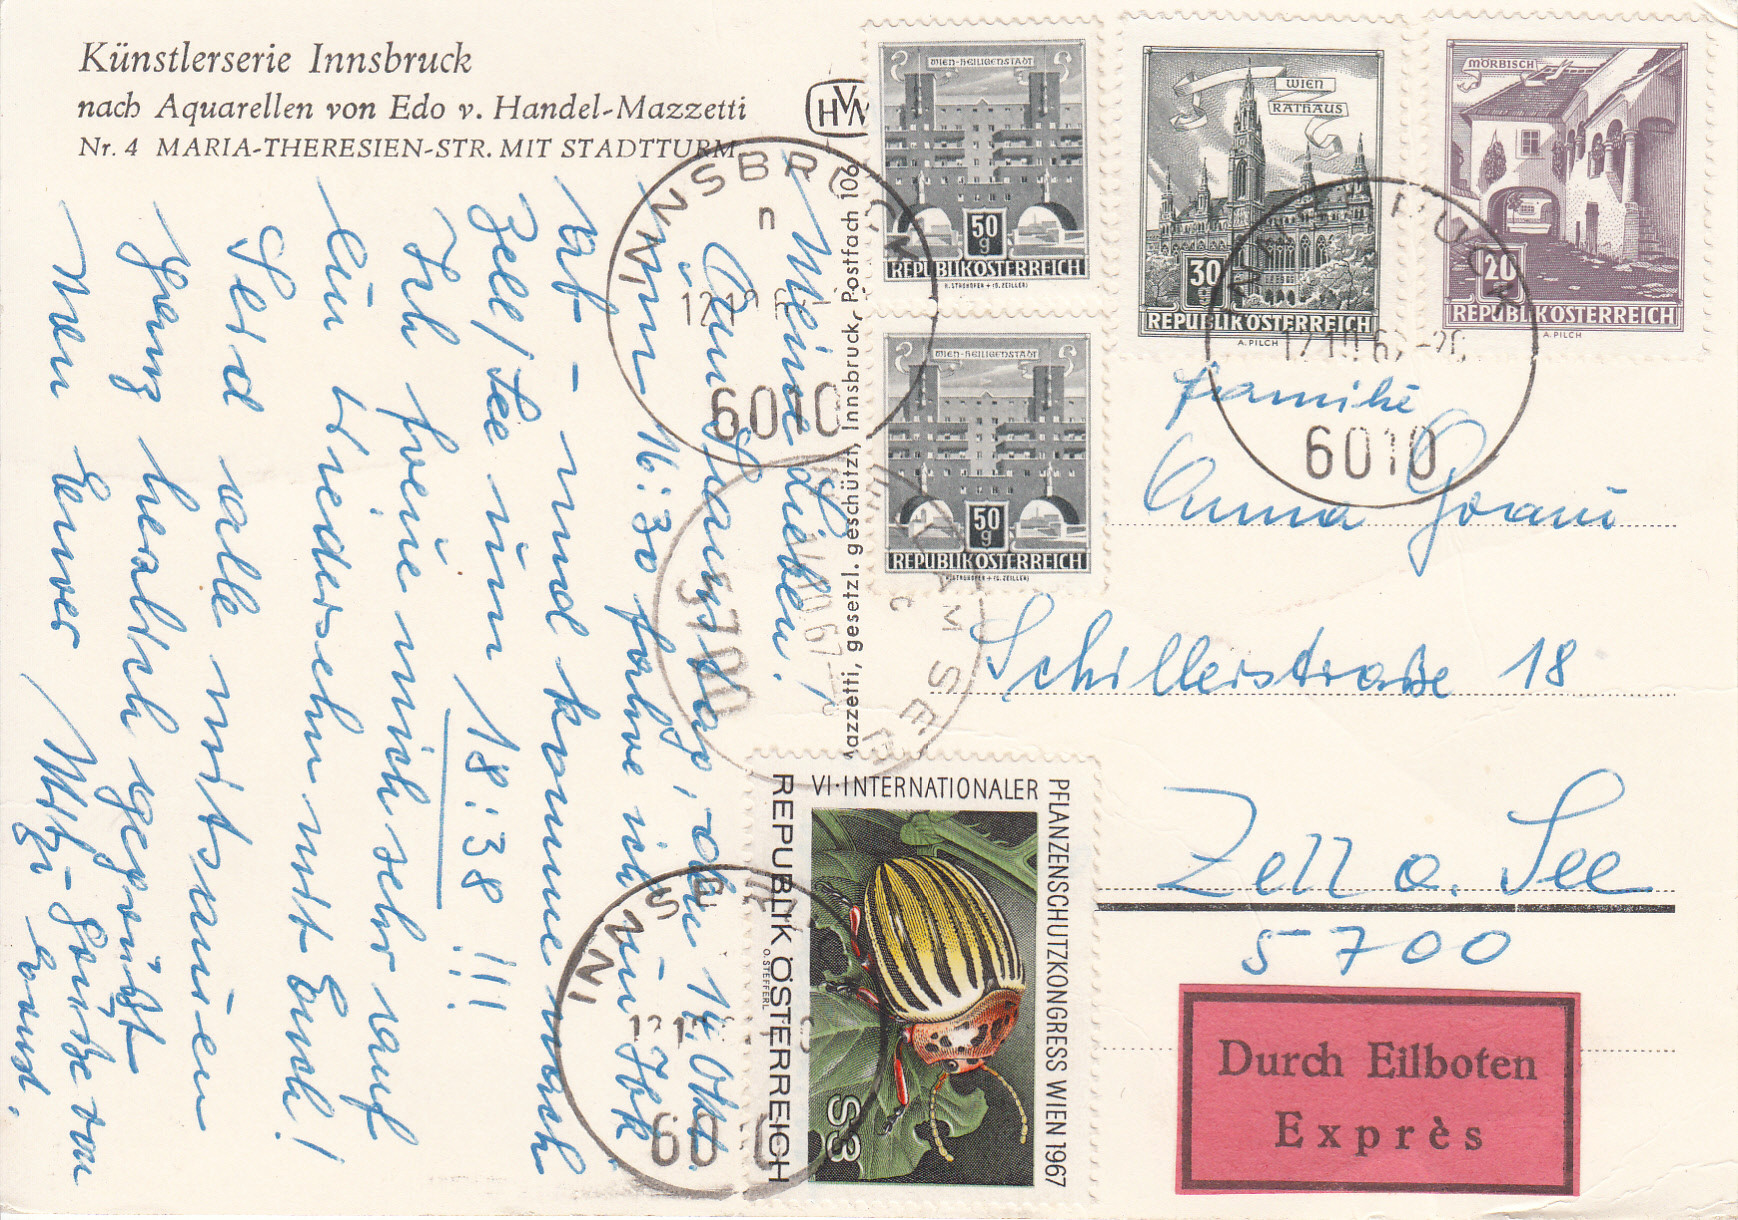 Künstlerserie Innsbruck
nach Aquarellen von Edo v. Handel-Mazzetti
Nr. 4 MARIA-THERESIEN-STR. MIT STADTTURM
HVM
azzetti, gesetzl. geschützt, Innsbruck, Postfach 106
Meine Lieben!
Am Samstag, den 14. Okt.
um 16:30 fahre ich in Ibk
ab – und komme nach
Zell/See um 18:38 !!!
Ich freue mich sehr auf
ein Wiedersehn mit Euch!
Seid alle mitsamen
ganz herzlich gegrüßt
von Eurer
Mitzi-Grüße von
WIEN-HEILIGENSTADT
50g
REPUBLIK ÖSTERREICH
WIEN-HEILIGENSTADT
50g
REPUBLIK ÖSTERREICH
WIEN
RATHAUS
30g
REPUBLIK ÖSTERREICH
A. PILCH
MÖRBISCH
20g
REPUBLIK ÖSTERREICH
A. PILCH
INNSBRUCK
n
6010
INNSBRUCK
6010
ZELL AM SEE
c
5700
INNSBRUCK
Familie
Anna
Schillerstraße 18
Zell a. See
5700
VI. INTERNATIONALER
PFLANZENSCHUTZKONGRESS WIEN 1967
REPUBLIK ÖSTERREICH
O. STEFFERL
S3
Durch Eilboten
Exprès